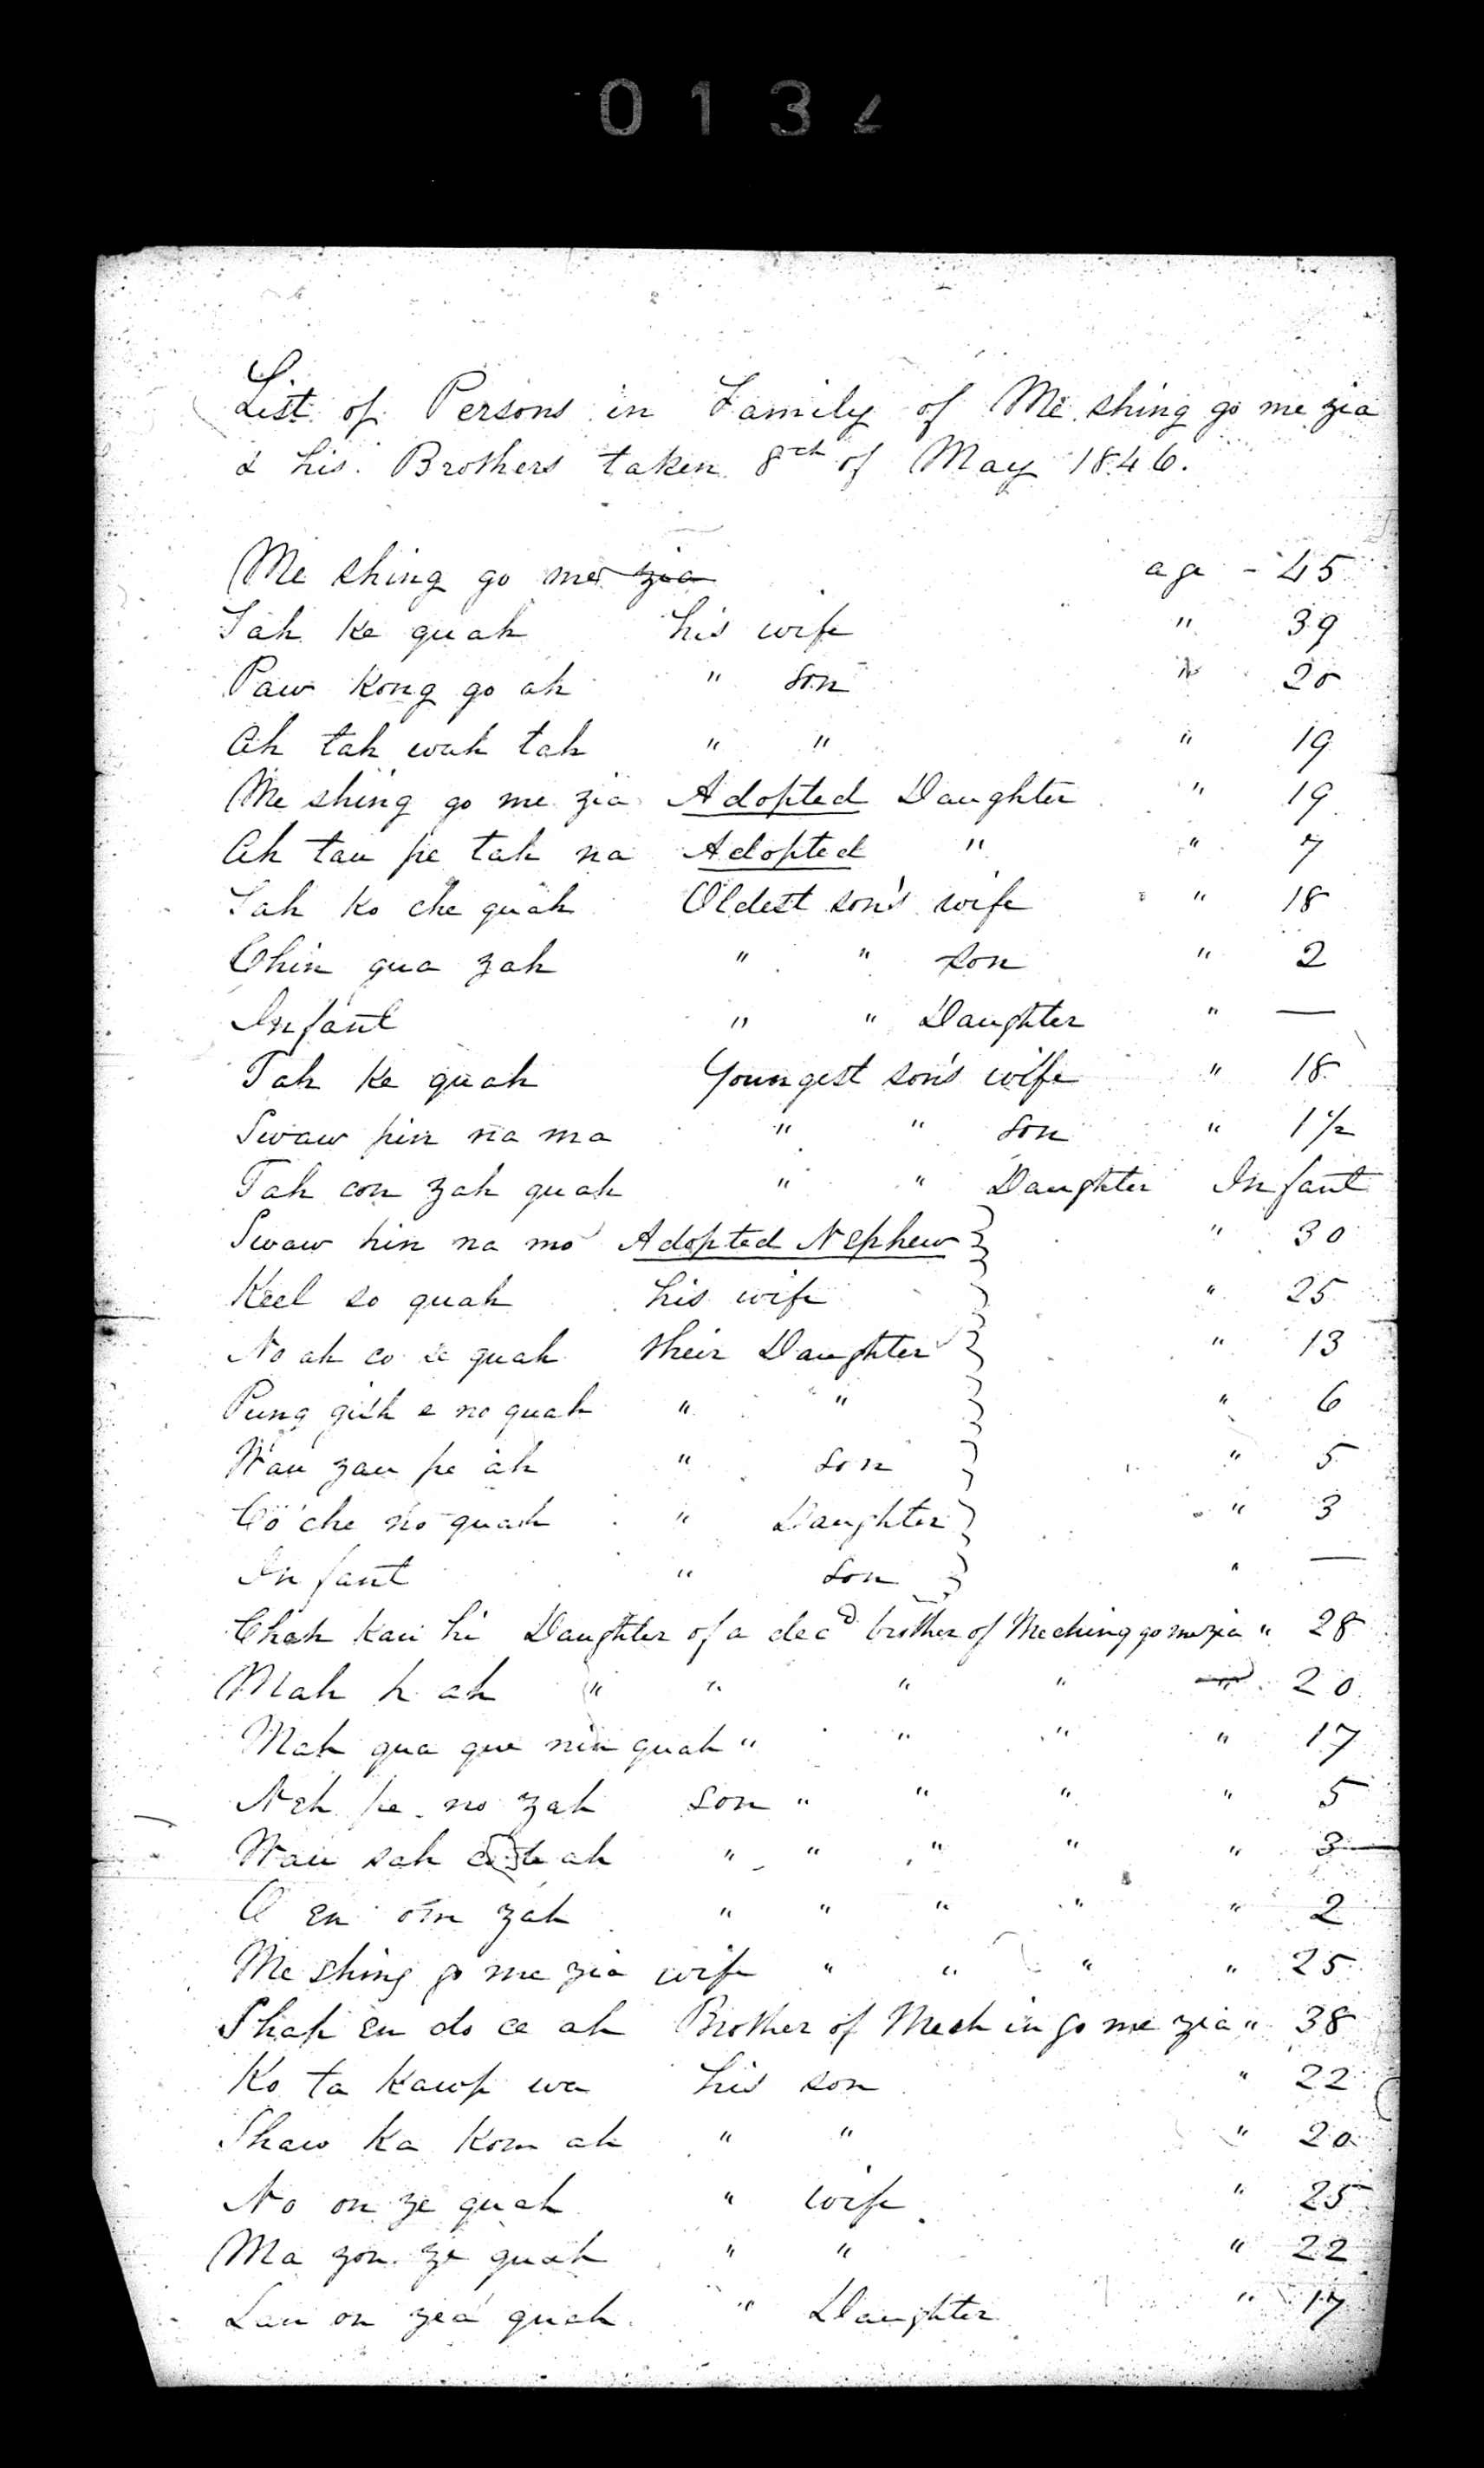 013
List of Persons in Family of Me shing go me zia
& his Brothers taken 8th of May 1846.
Me shing go me zia age - 45
Tah ke quah his wife " 39
Paw Kong go ah " son " 20
Ah tah wah tah " " " 19
Me shing go me zia Adopted Daughter " 19
Ah tau pe tah na Adopted " " 7
Tah ko che quah Oldest son's wife " 18
Chin qua zah " " son " 2
Infant " " Daughter " —
Tah ke quah Youngest son's wife " 18
Swaw pin na ma " " son " 1½
Tah con zah quah " " Daughter Infant
Swaw hin na mo Adopted Nephew " 30
Keel so quah his wife " 25
No ah co ze quah their Daughter " 13
Pung gish e no quah " " " 6
Wau zau pe ah " son " 5
Co che no quah " Daughter " 3
Infant " son " —
Chah kau hi Daughter of a decd brother of Meching go me zia " 28
Mah h ah " " " " " 20
Mah qua que nin quah " " " " 17
Neh pe no zah son " " " " 5
Wau sah ah " " " " " 3
O en oin zah " " " " " 2
Me shing go me zia wife " " " " 25
Shap en do ce ah Brother of Mech in go me zia " 38
Ko ta kawp wa his son " 22
Shaw ka kom ah " " " 20
No on ze quah " wife " 25
Ma zon ze quah " " " 22
Lau on zea quah " Daughter " 17